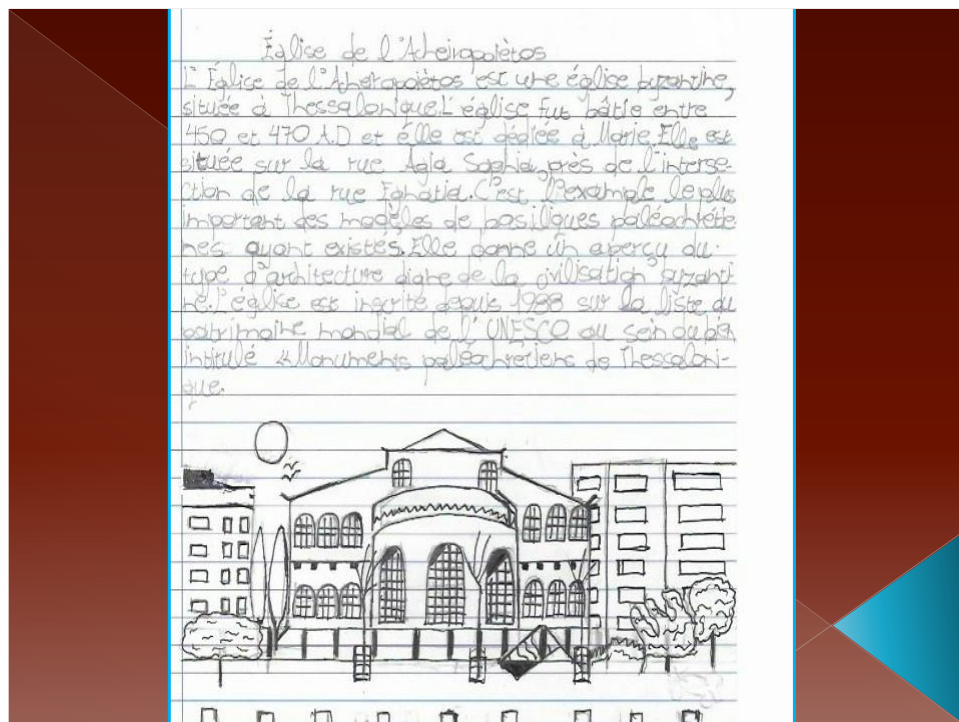 Église de l'Acheiropoiètos
L'Église de l'Acheiropoiètos est une église byzantine,
située à Thessalonique.L'église fut bâtie entre
450 et 470 A.D et élle est dédiée à Marie.Elle est
située sur la rue Agia Sophia,près de l'interse-
ction de la rue Egnatia.C'est l'example le plus
important des modèles de basiliques paléochrétie
nes ayant existés.Elle donne un aperçu du
type d'architecture digne de la civilisation byzanti
ne.L'église est inscrite depuis 1988 sur la liste du
patrimoine mondial de l'UNESCO au sein du bien
intitulé «Monuments paléochrétiens de Thessaloni-
que.